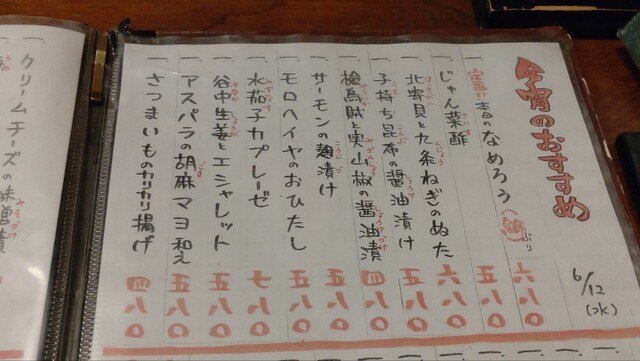 今宵のおすすめ
6/12
(水)
一 定番!! 本日のなめろう(鰤) ぶり 六八〇
一 じゅん菜酢 さいす 五八〇
一 北寄貝と九条ねぎのぬた 六八〇
一 子持ち昆布の醤油漬け 五八〇
一 槍烏賊と実山椒の醤油漬 四八〇
一 サーモンの麹漬け こうじづ 五八〇
一 モロヘイヤのおひたし 五八〇
一 水茄子カプレーゼ みずなす 七八〇
一 谷中生姜とエシャレット 五八〇
一 アスパラの胡麻マヨ和え ごま 五八〇
一 さつまいものカリカリ揚げ 四八〇
一 クリームチーズの味噌漬 みそづけ